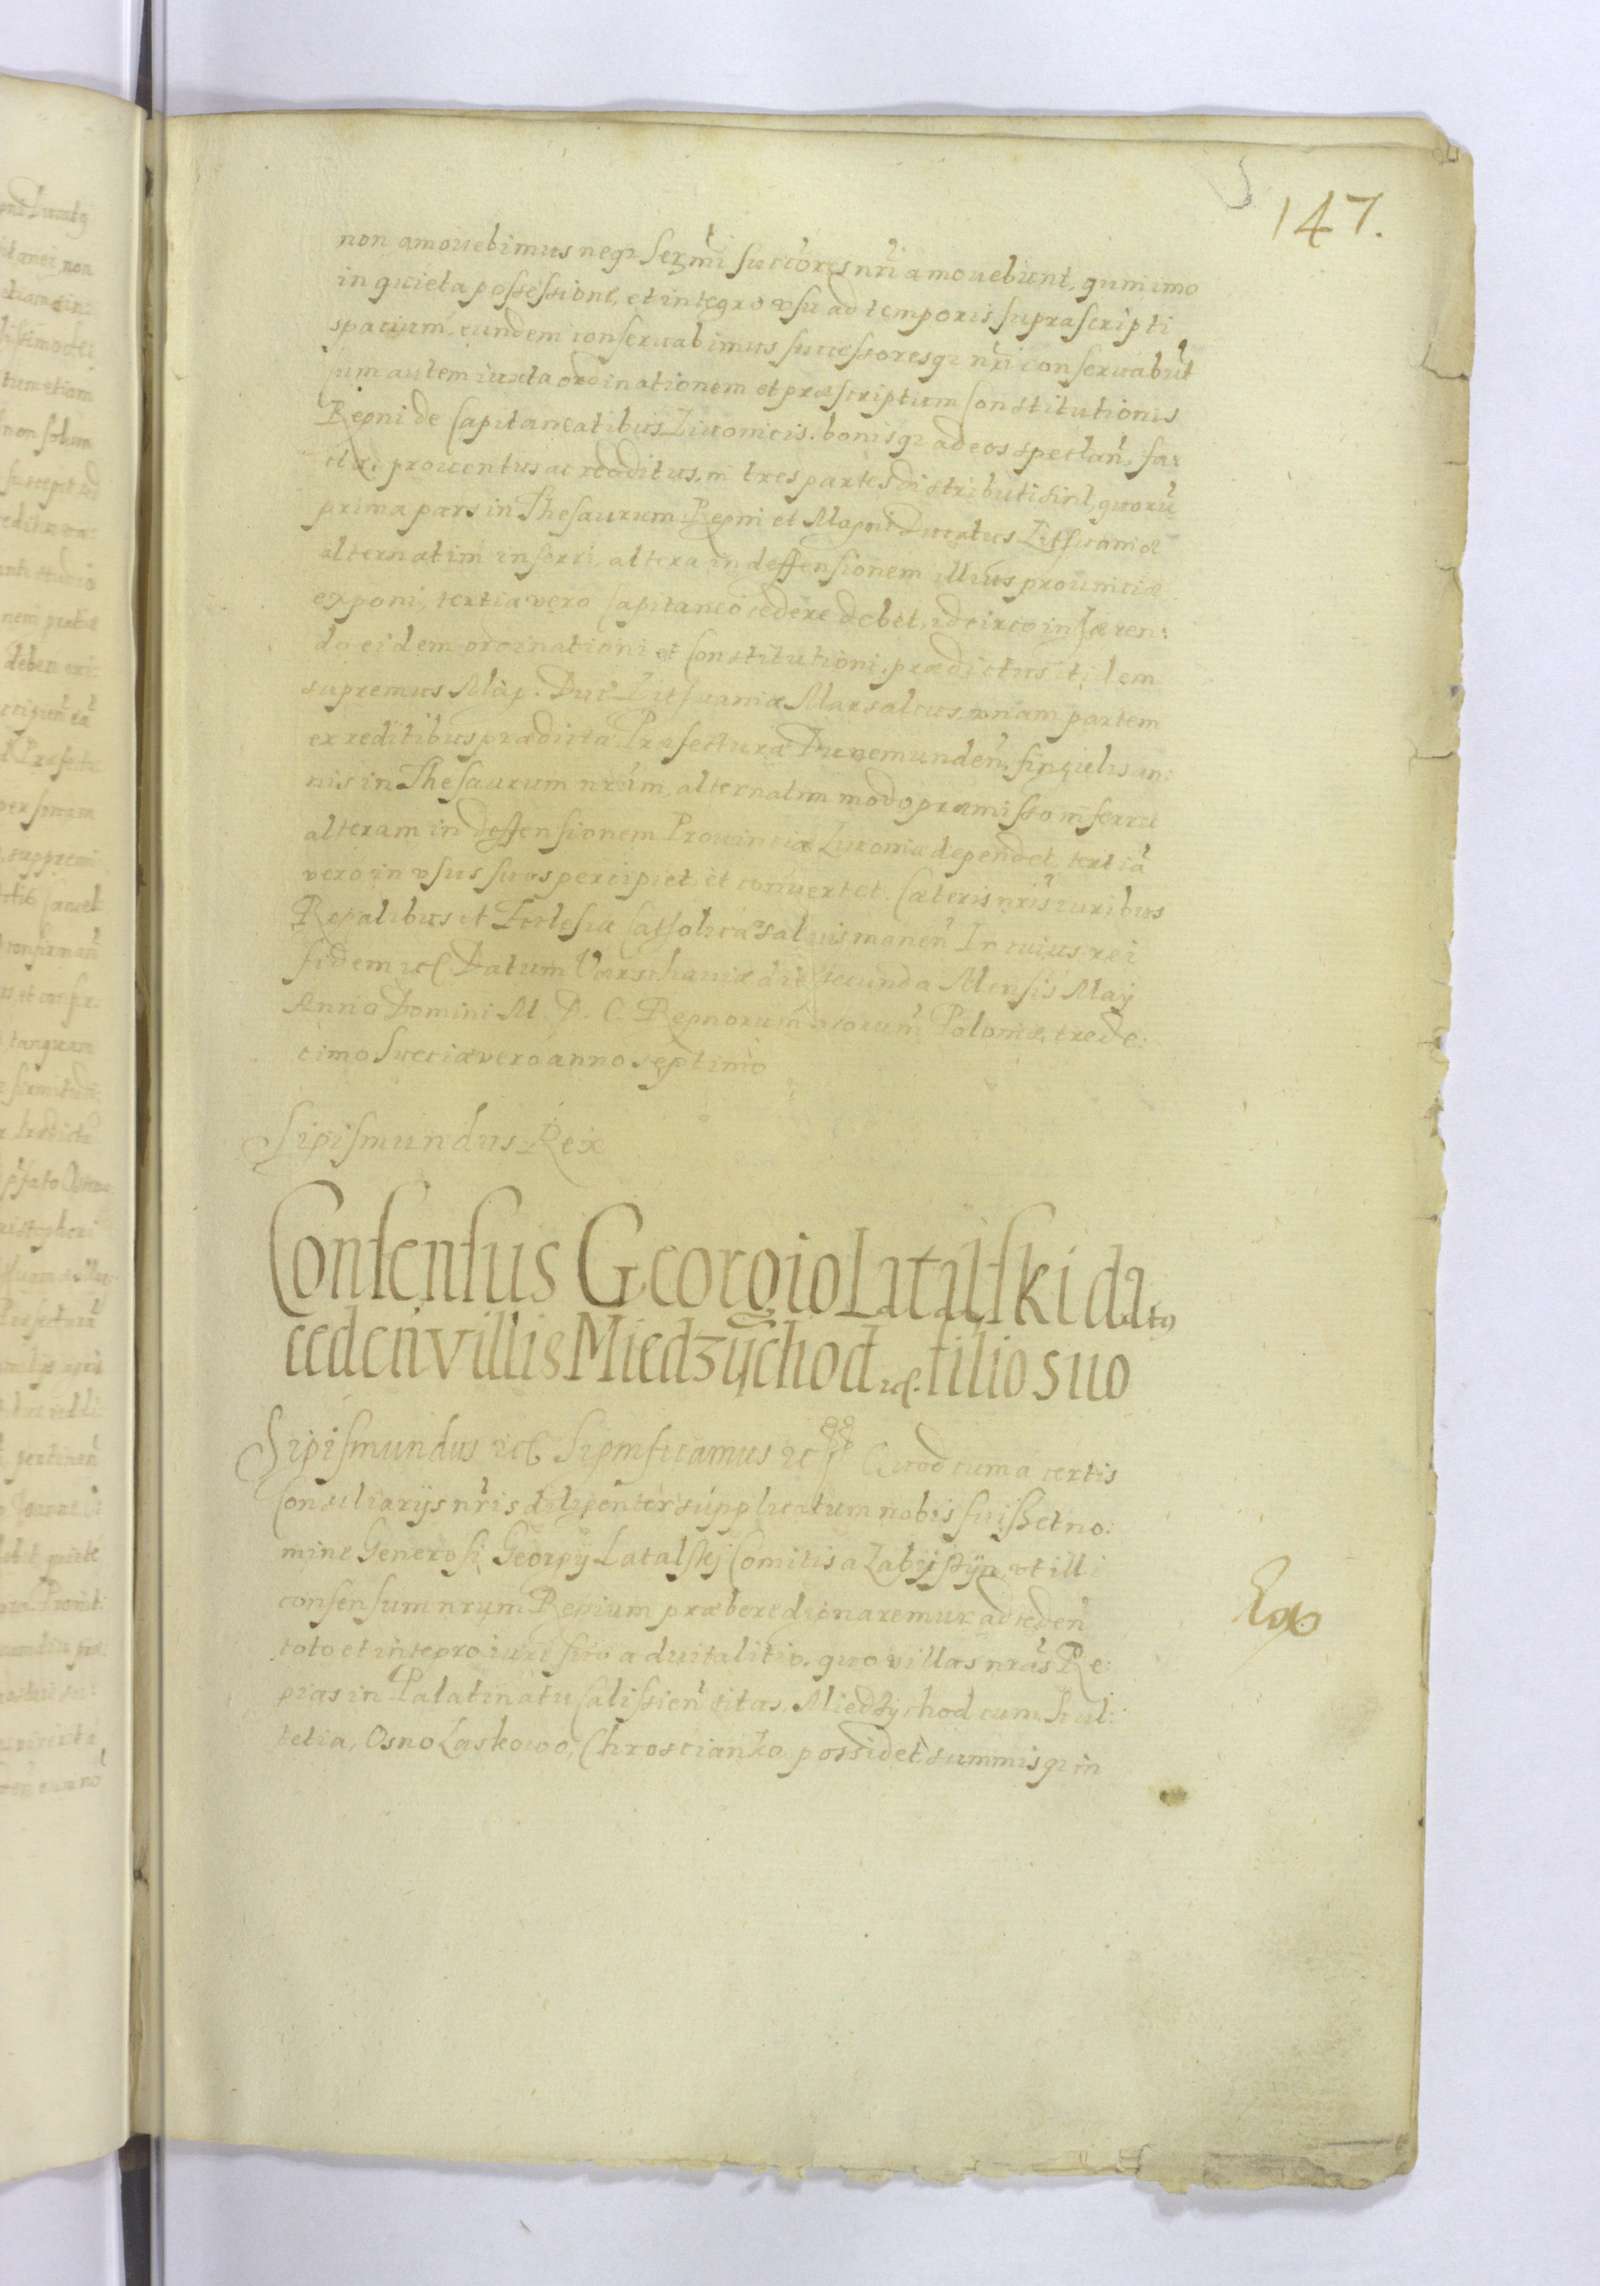 147.
non amouebimus neqȝ Serm̃i succ̃ores nr̃i amouebunt, quin imo
in quieta possessione, et integro vsu ad temporis suprascripti
spacium, eundem conseruabimus successoresqȝ nr̃i conseruabut̃
Cum autem iuxta ordinationem et præscriptum Constitutionis
Regni de Capitaneatibus Liuonicis. bonisqȝ ad eos spectan̄, fa:
ctæ, prouentus ac redditus, in tres partes distributi sint, quorū
prima pars in Thesaurum Regni et Magni Ducatus Lithuaniæ
alternatim inferri, altera in deffensionem illius prouinciæ
exponi, tertia vero Capitaneo cedere debet, idcirco inhæren:
do eidem ordinationi et Constitutioni, prædictus itidem
supremus Mag. Duc̃ Lithuaniæ Marsalcus, vnam partem
ex reditibus prædictæ Præfecturæ Dunemunden̄, singulis an:
nis in Thesaurum nrūm, alternatim modo præmisso inferret
alteram in deffensionem Prouinciæ Liuoniæ dependet, tertiā
vero in vsus suos percipiet et conuertet. Cæteris nr̃is iuribus
Regalibus et Ecclesiæ Catholicæ saluis manen̄ In cuius rei
fidem etc̃ Datum Varschauiæ die secunda Mensis Maij
Anno Domini M. D. C. Regnorum nrorum Poloniæ, trede:
cimo Sueciæ vero anno septimo
Sigismundus Rex
Consensus Georgio Latalski datus
ceden̄ villis Miedzÿchod etc. filio suo
Sigismundus etc̃ Significamus etc̃ Quod cum a certis
Consiliarijs nr̃is diligenter supplicatum nobis fuisset no:
mine Generosi Georgij Latalskj Comitis a Labijssÿn, vt illi
consensum nrum Regium præbere dignaremur ad ceden̄
toto et integro iure suo aduitalitio. quo villas nrãs Re:
gias in Palatinatu Calissien̄ sitas, Miedzÿchod cum Scul:
tetia, Osno Laskowo, Chroscianka possidet, summisqȝ in